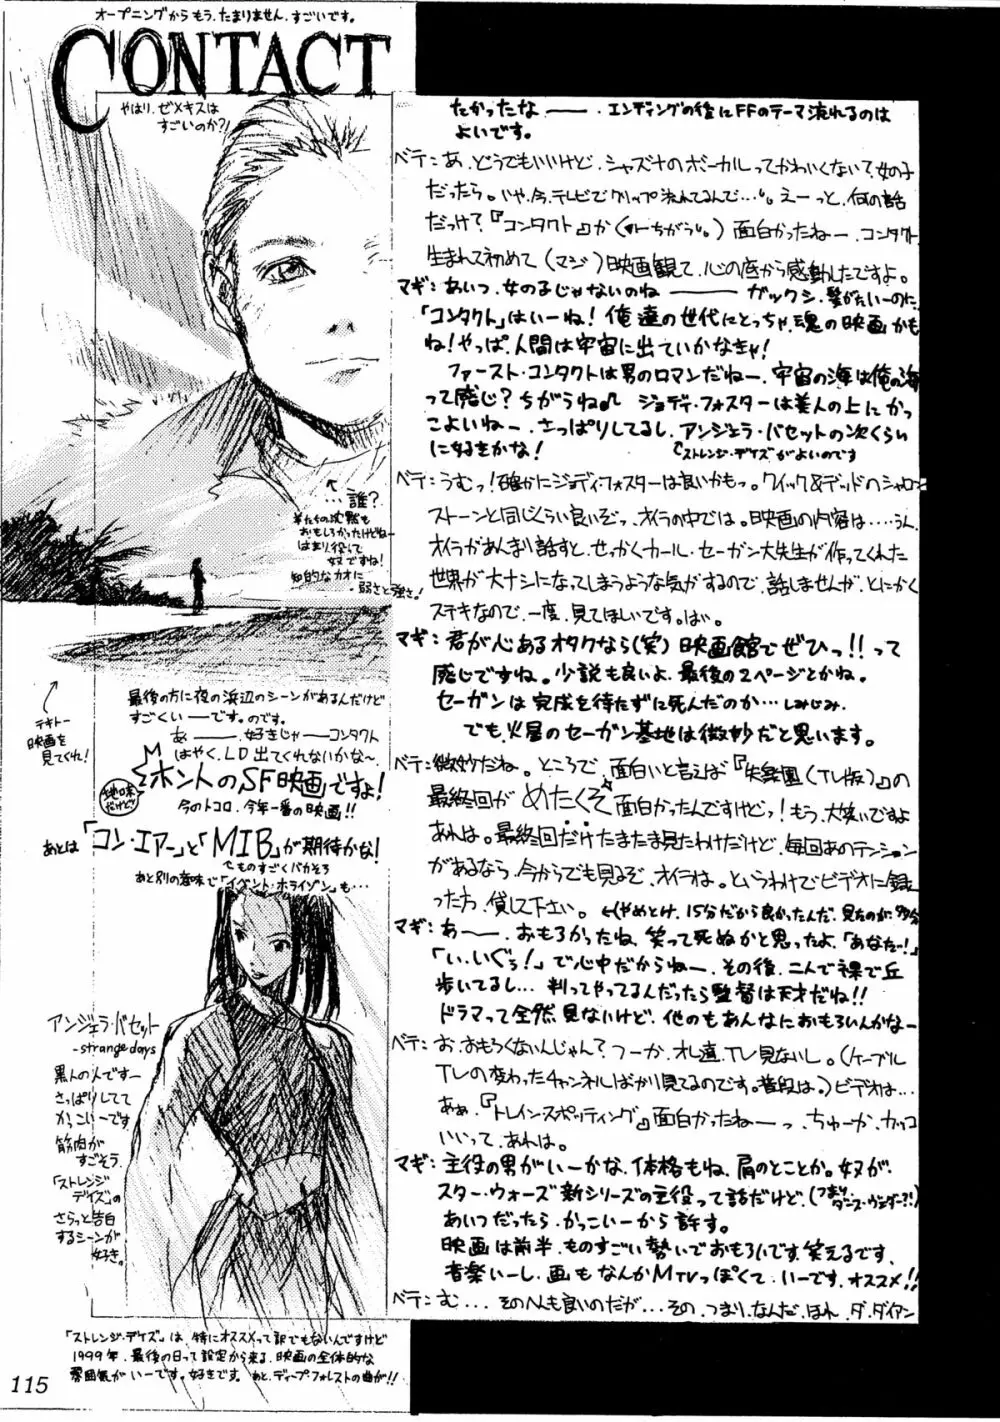 オープニングからもう、たまりません、すごいです。
CONTACT
やはり、ゼメキスは
すごいのか?!
←…誰?
羊たちの沈黙も
おもしろかったけどねー
はまり役して
奴ですね!
知的なカオに
弱さと強さ!
テキトー
映画を
見てくれ!
最後の方に夜の浜辺のシーンがあるんだけど
すごくいーです。のです。
あー、好きじゃーコンタクト
はやく、LD出てくれないかな~、
ホントのSF映画ですよ!
地味だけど
今のトコロ、今年一番の映画!!
あとは「コン・エアー」と「MIB」が期待かな!
ものすごくバカそう
あと別の意味で「イベント・ホライゾン」も…
アンジェラ・バセット
-strange days
黒人の人ですー
さっぱりしてて
かっこいーです
筋肉が
すごそう、
「ストレンジ
デイズ」の
さらっと告白
するシーンが
好き。
「ストレンジ・デイズ」は、特にオススメって訳でもないんですけど
1999年、最後の日って設定から来る、映画の全体的な
雰囲気がいーです。好きです。あと、ディープ・フォレストの曲が!!
115
たかったなー、エンディングの後にFFのテーマ流れるのは
よいです。
ベテ:あ、どうでもいいけど、シャズナのボーカルってかわいくない?、女の子
だったら。いや、今、テレビでクリップ流れてるんで…。えーっと、何の話
だっけ?『コンタクト』か(←ちがう。)面白かったねー、コンタクト
生まれて初めて(マジ)映画観て、心の底から感動したですよ。
マギ:あいつ、女の子じゃないのねーガックシ、髪がいーのに
「コンタクト」はいーね!俺達の世代にとっちゃ、魂の映画かも
ね!やっぱ、人間は宇宙に出ていかなきゃ!
ファースト・コンタクトは男のロマンだねー、宇宙の海は俺の海
って感じ?ちがうね♪ジョディ・フォスターは美人の上にかっ
こよいねー、さっぱりしてるし、アンジェラ・バセットの次くらい
に好きかな!
「ストレンジ・デイズ」がよいのです
ベテ:うむっ!確かにジョディ・フォスターは良いかもっ。クイック&デッドのシャロン
ストーンと同じくらい良いぞっ、オイラの中では。映画の内容は……うん、
オイラがあんまり話すと、せっかくカール・セーガン大先生が作ってくれた
世界が大ナシになってしまうような気がするので、話しませんが、とにかく
ステキなので、一度、見てほしいです。はい。
マギ:君が心あるオタクなら(笑)映画館でぜひっ!!って
感じですね。小説も良いよ、最後の2ページとかね。
セーガンは完成を待たずに死んだのか…しみじみ、
でも、火星のセーガン基地は微妙だと思います。
ベテ:微妙だね。ところで、面白いと言えば『失楽園(TV版)』の
最終回がめたくそ面白かったんですけどっ!もう、大笑いですよ
あれは。最終回だけたまたま見たわけだけど、毎回あのテンション
があるなら、今からでも見るぞ、オイラは。というわけでビデオに録
った方、貸して下さい。←(やめとけ、15分だから良かったんだ、見たのが、
マギ:あー、おもろかったね、笑って死ぬかと思ったよ、「あなた!」
「い、いぐぅ!」で心中だからねー、その後、二人で裸で丘
歩いてるし…判ってやってるんだったら監督は天才だね!!
ドラマって全然、見ないけど、他のもあんなにおもろいんかなー
ベテ:お、おもろくないんじゃん?つーか、オレ達、TV見ないし。(ケーブル
TVの変わったチャンネルばかり見てるのです。普段は。)ビデオは…
あぁ、『トレイン・スポッティング』面白かったねーっ、ちゅーか、カッコ
いいって、あれは。
マギ:主役の男がいーかな、体格もね、肩のとことか。奴が、
スター・ウォーズ新シリーズの主役って話だけど、
あいつだったら、かっこいーから許す。
映画は前半、ものすごい勢いでおもろいです、笑えるです、
音楽いーし、画もなんかMTVっぽくて、いーです、オススメ!!
ベテ:む…、そのへんも良いのだが…その、つまり、なんだ、ほれ、ダ、ダイアン